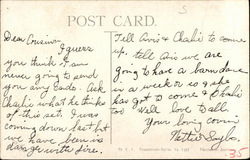 5
POST CARD.
Dear Cousin;
I guess
you think I am
never going to send
you any cards. Ask
Charlie what he thinks
of this set. I was
coming down last but
we have been in
danger with fire.
Tell Avis & Charlie to come
up. tell Avis we are
going to have a barn dance
in a week or so & she
has got to come & Charlie
too. Well love to all.
Your loving cousin
Nettie